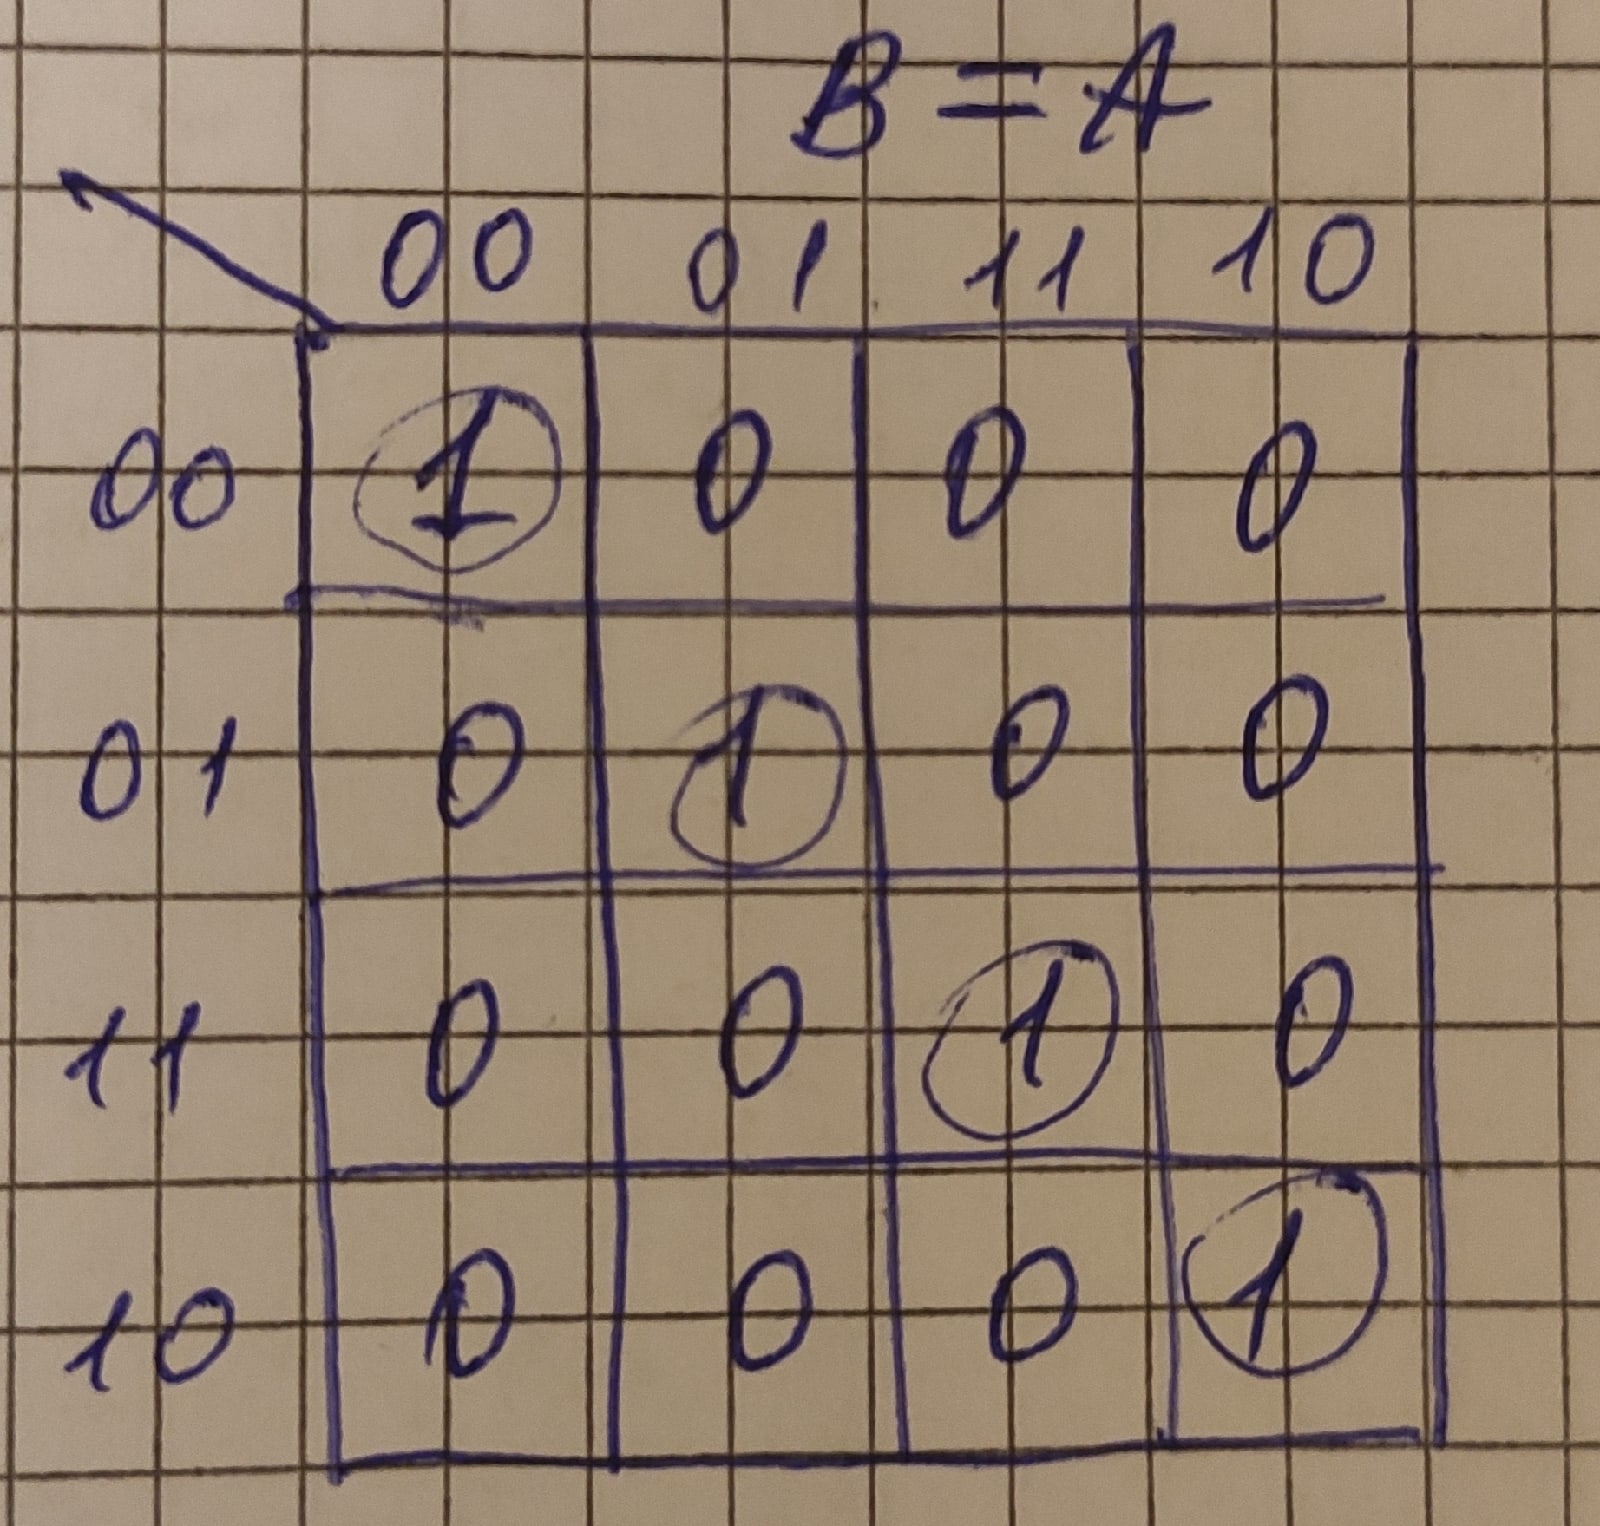 B = A
00 01 11 10
00 1 0 0 0
01 0 1 0 0
11 0 0 1 0
10 0 0 0 1